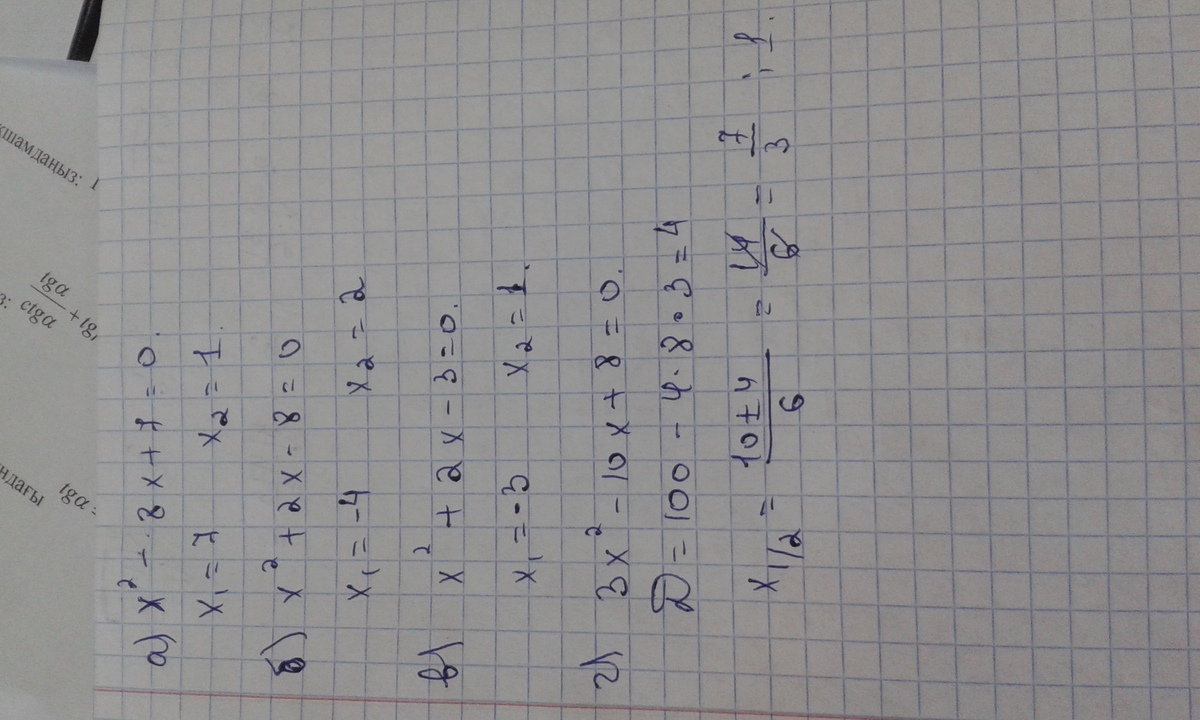 а) x² - 8x + 7 = 0.
x₁ = 7 x₂ = 1.
б) x² + 2x - 8 = 0
x₁ = -4 x₂ = 2
в) x² + 2x - 3 = 0.
x₁ = -3 x₂ = 1.
г) 3x² - 10x + 8 = 0.
D = 100 - 4·8·3 = 4
x₁/₂ = 10±4/6 = 14/6 = 7/3 ; 1.
қшамдаңыз: 1
з: tgα/ctgα + tg
ндағы tgα =